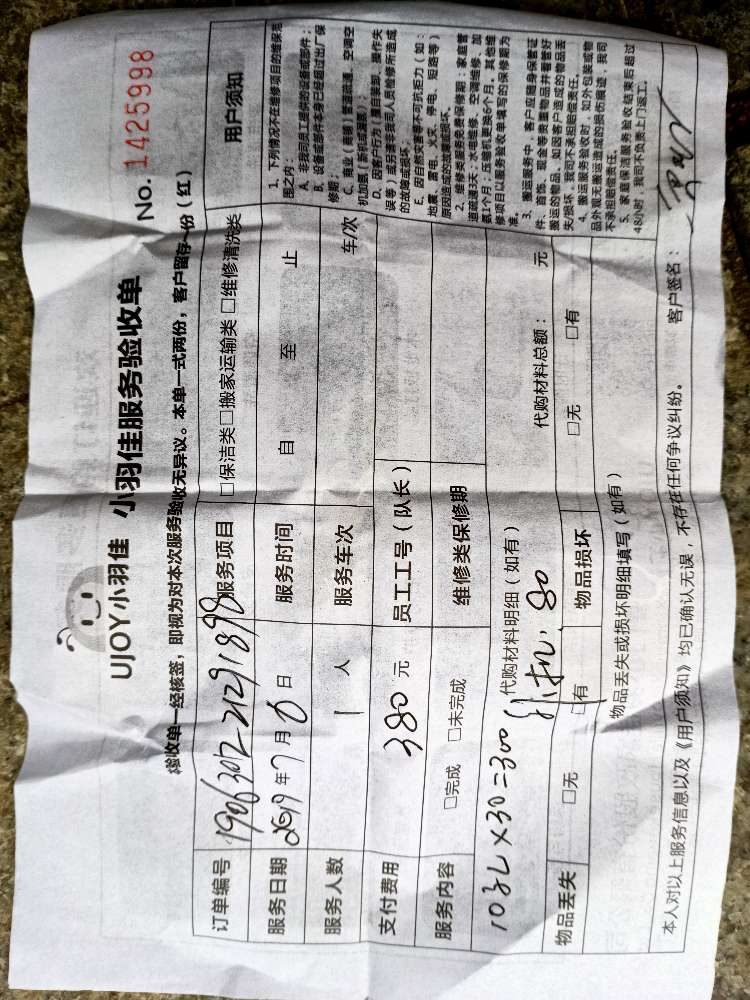 UJOY小羽佳 小羽佳服务验收单 No. 1425998
验收单一经核签，即视为对本次服务验收无异议。本单一式两份，客户留存一份（红）
订单编号 服务项目 □保洁类□搬家运输类 □维修清洗类
服务日期 2019年7月6日 服务时间 自 至 止
服务人数 1 人 服务车次 车/次
支付费用 380 元 员工工号（队长）
服务内容 □完成 □未完成 维修类保修期
代购材料明细（如有） 代购材料总额： 元
×30=300 外机.80
物品丢失 □无 □有 物品损坏 □无 □有
物品丢失或损坏明细填写（如有）
用户须知
1、下列情况不在维修项目的维保范
围之内：
A、非我司员工提供的设备或部件；
B、设备或部件本身已经超过出厂保
修期；
C、商业（商铺）管道疏通、空调空
机加氟（新机或漏氟）；
D、因客户行为（擅自装卸、操作失
误等）或另请非我司人员维修所造成
的故障或损坏。
E、因自然灾害等不可抗拒力（如：
地震、雷电、火灾、停电、短路等）
原因造成的故障或损坏。
2、维修类服务免费保修期：家庭管
道疏通3天；水电维修、空调维修、加
氟1个月；压缩机更换6个月，其他维
修项目以服务验收单填写的保修期为
准。
3、搬运服务中，客户应随身保管证
件、首饰、现金等贵重物品并看管好
搬运的物品，如因客户造成的物品丢
失/损坏，我司不承担赔偿责任。
4、搬运服务验收时，如外包装或物
品外观无搬运造成的损伤痕迹，我司
不承担赔偿责任。
5、家庭保洁服务验收结束后超过
48小时，我司不负责上门返工。
本人对以上服务信息以及《用户须知》均已确认无误，不存在任何争议纠纷。 客户签名：